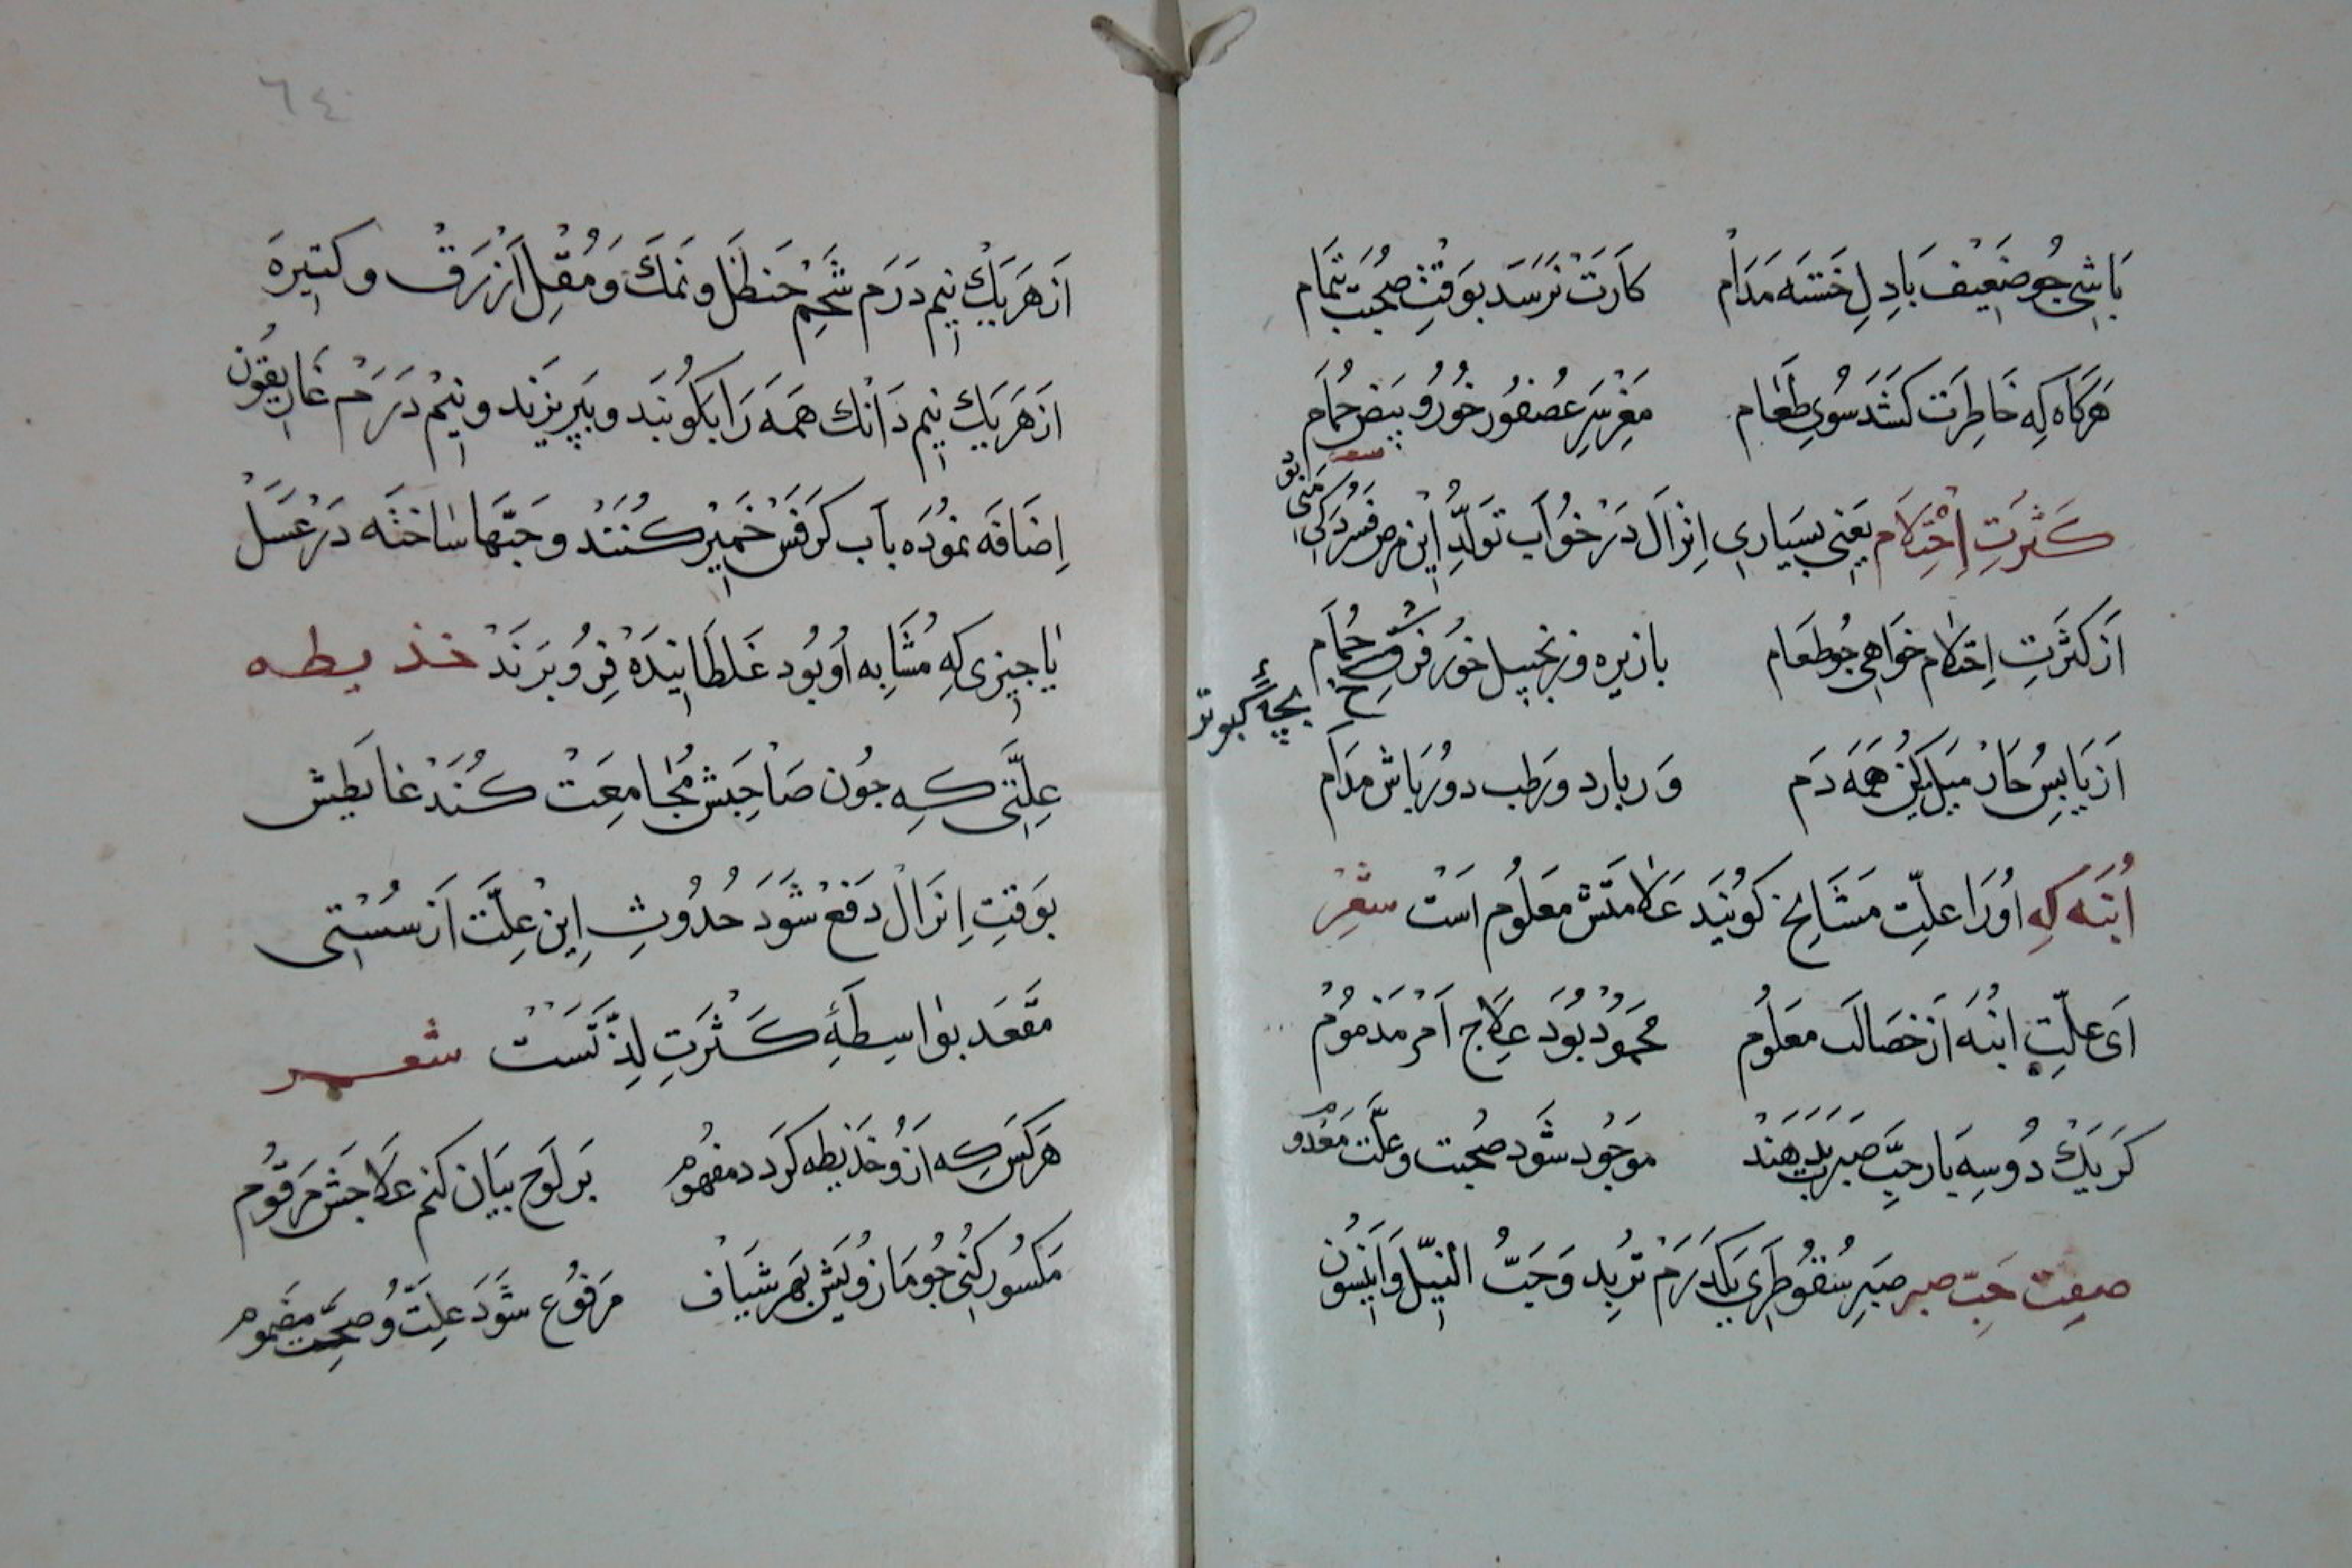 بَاشِی جُو ضَعِیْفَ بَادِلِ خَسْتَه مَدَامْ کَارَتْ نَرَسَدَ بوَقْتِ صُحْبَتْ بتَمَام
هَرکَاه کِه خَاطِرَت کَشَدَ سُویِ طَعَام مَغْزِ سَرِ عُصْفُور خُور وُ بَیْضِ حُمَام
کَثْرَتِ اِحْتِلَام یَعنِی بسْیَاریِ اِنزَال دَرْ خُوَاب تَوَلُّدِ اِین مرض فسردکی منی
شعر
اَز کَثْرَتِ اِحْتِلَام خوَاهی جُو طَعَام بازیره وزنجبیل خور فَرْخِ حُمَام
بچۀ کبوتر
اَز یَابِسُ حَارْ مَیل کُنْ هَمَه دَم وَر بارد ورطب دوُر بَاش مدَام
اُبْنَه کِه اوُرَا علّتِ مَشَایخ کویَنْد عَلَامَتَشْ معَلُوم اَسْت شعْر
اَی علّتِ ابْنَه اَز خصَالَت معَلُوم محَمُودْ بُوَدْ عِلَاجِ اَمْر مَذمُوُم
کَر یَكْ دُو سِه بَار حَبِّ صَبَر بدِهَند موَجُود شَود صُحبت وعلّت مَعْدوم
صِفِتْ حَبّ صبر صَبَرِ سُقُوطَرِی یَکدَرَمْ تُرْبُد وَحَبُّ النِّیل وَاَنیسُون
٦٤
اَز هَر یَكْ نیم دَرَم شَحْمِ حَنظَل ونَمَكَ وَمُقْلِ اَزْرَقْ وکتیرَه
اَز هَر یَكْ نیم دَانْك هَمَه رَا بکُوبَند وببَیزند ونیْم دَرَمْ غَارِیقُون
اِضَافَه نمُودَه بآب کَرَفَسْ خَمیْر کُنَنْد وحَبّهَا سَاختَه دَرْ عَسَلْ
یَا جیزی کهِ مُشَابِه اُو بُود غَلطَانیدَهْ فُرُو بَرَنَدْ خذیطه
عِلَّتی کِه جُون صَاحِبَش مُجَامعَتْ کُنَدْ غَایطَش
بوَقْتِ اِنزَالْ دَفعْ شَوَد حُدُوثِ اِینْ عِلَّت اَز سُسْتی
مَقَّعَد بوَاسِطَهٔ کَثْرَتِ لِذَّتَسْت شعر
هَر کَس کِه اَزُو خَذیطه کَردد مفهُوم بَر لَوح بیَان کنم عَلَاجَش مَرقُوم
مَکسُور کُنی جُو مَازُو یَش بَهر شیَاف مَرفوُع شَوَد عِلَّت وُ صِحَّت مضموم